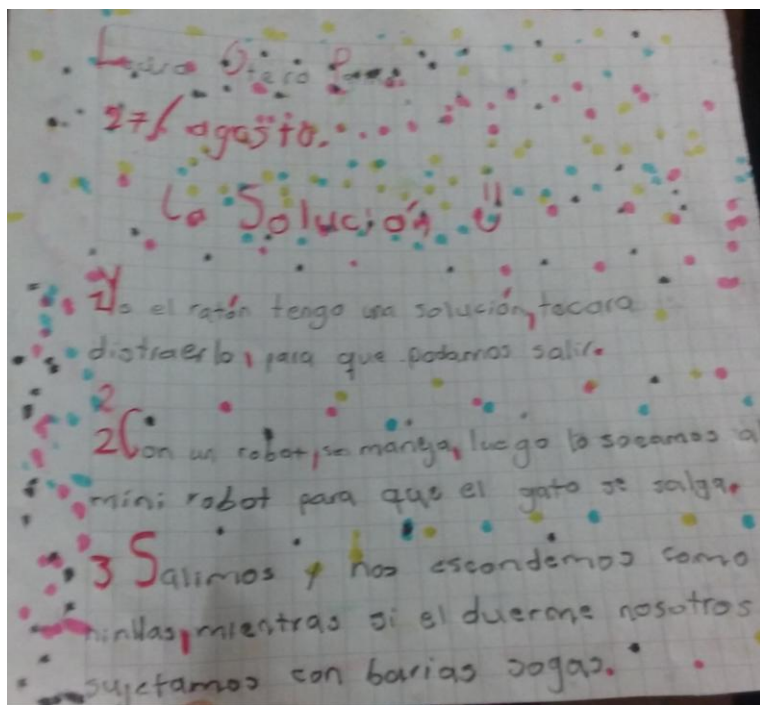 Laura Otero
27/ agosto.
La Solución
1 Yo el ratón tengo una solución, tocara
distraerlo, para que podamos salir.
2
2 Con un robot, se maneja, luego lo socamos al
mini robot para que el gato se salga.
3 Salimos y nos escondemos como
ninllas, mientras si el duerme nosotros
sujetamos con barias sogas.